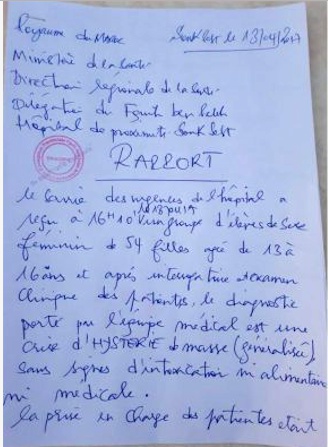 Royaume du Maroc
Souk Sebt le 13/04/2017
Ministère de la Santé
Direction Régionale de la Santé
Délégation du Fquih ben saleh
Hôpital de proximité Souk Sebt
RAPPORT
le Service des urgences de l'hôpital a
reçu à 16H10' un groupe d'élèves de Sexe
féminin de 54 filles agé de 13 à
16 ans et après interrogatoire et examen
clinique des patientes, le diagnostic
porté par l'équipe médical est une
Crise d'HYSTERIE de masse (généralisée)
sans signes d'intoxication ni alimentaire
ni médicale.
la prise en charge des patientes etait